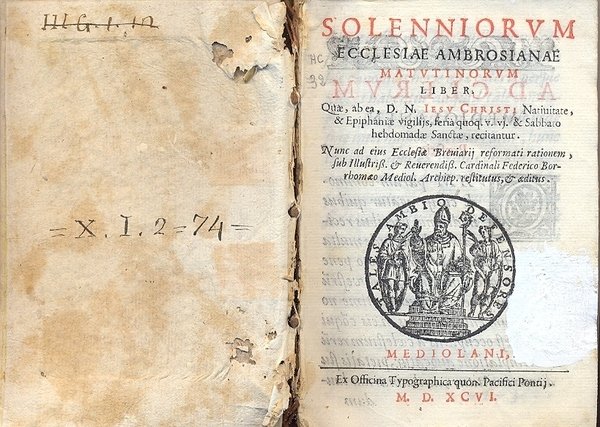 III G. I. 12
= X. I. 2 = 74 =
SOLENNIORVM
ECCLESIAE AMBROSIANAE
MATVTINORVM
LIBER,
Quæ, ab ea, D. N. IESV CHRISTI Natiuitate,
& Epiphaniæ vigilijs, feria quoq. v. vj. & Sabbato
hebdomadæ Sanctæ, recitantur.
Nunc ad eius Ecclesiæ Breuiarij reformati rationem,
sub Illustriß. & Reuerendiß. Cardinali Federico Bor-
rhomæo Mediol. Archiep. restitutus, & æditus.
TALES AMBIO DEFENSORES
MEDIOLANI,
Ex Officina Typographica quon. Pacifici Pontij.
M. D. XCVI.